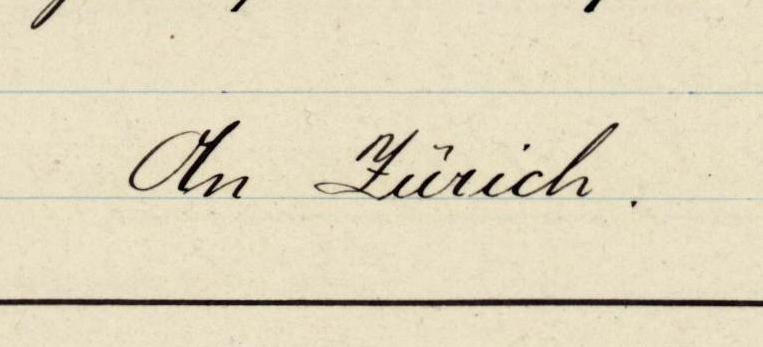 An Zürich.